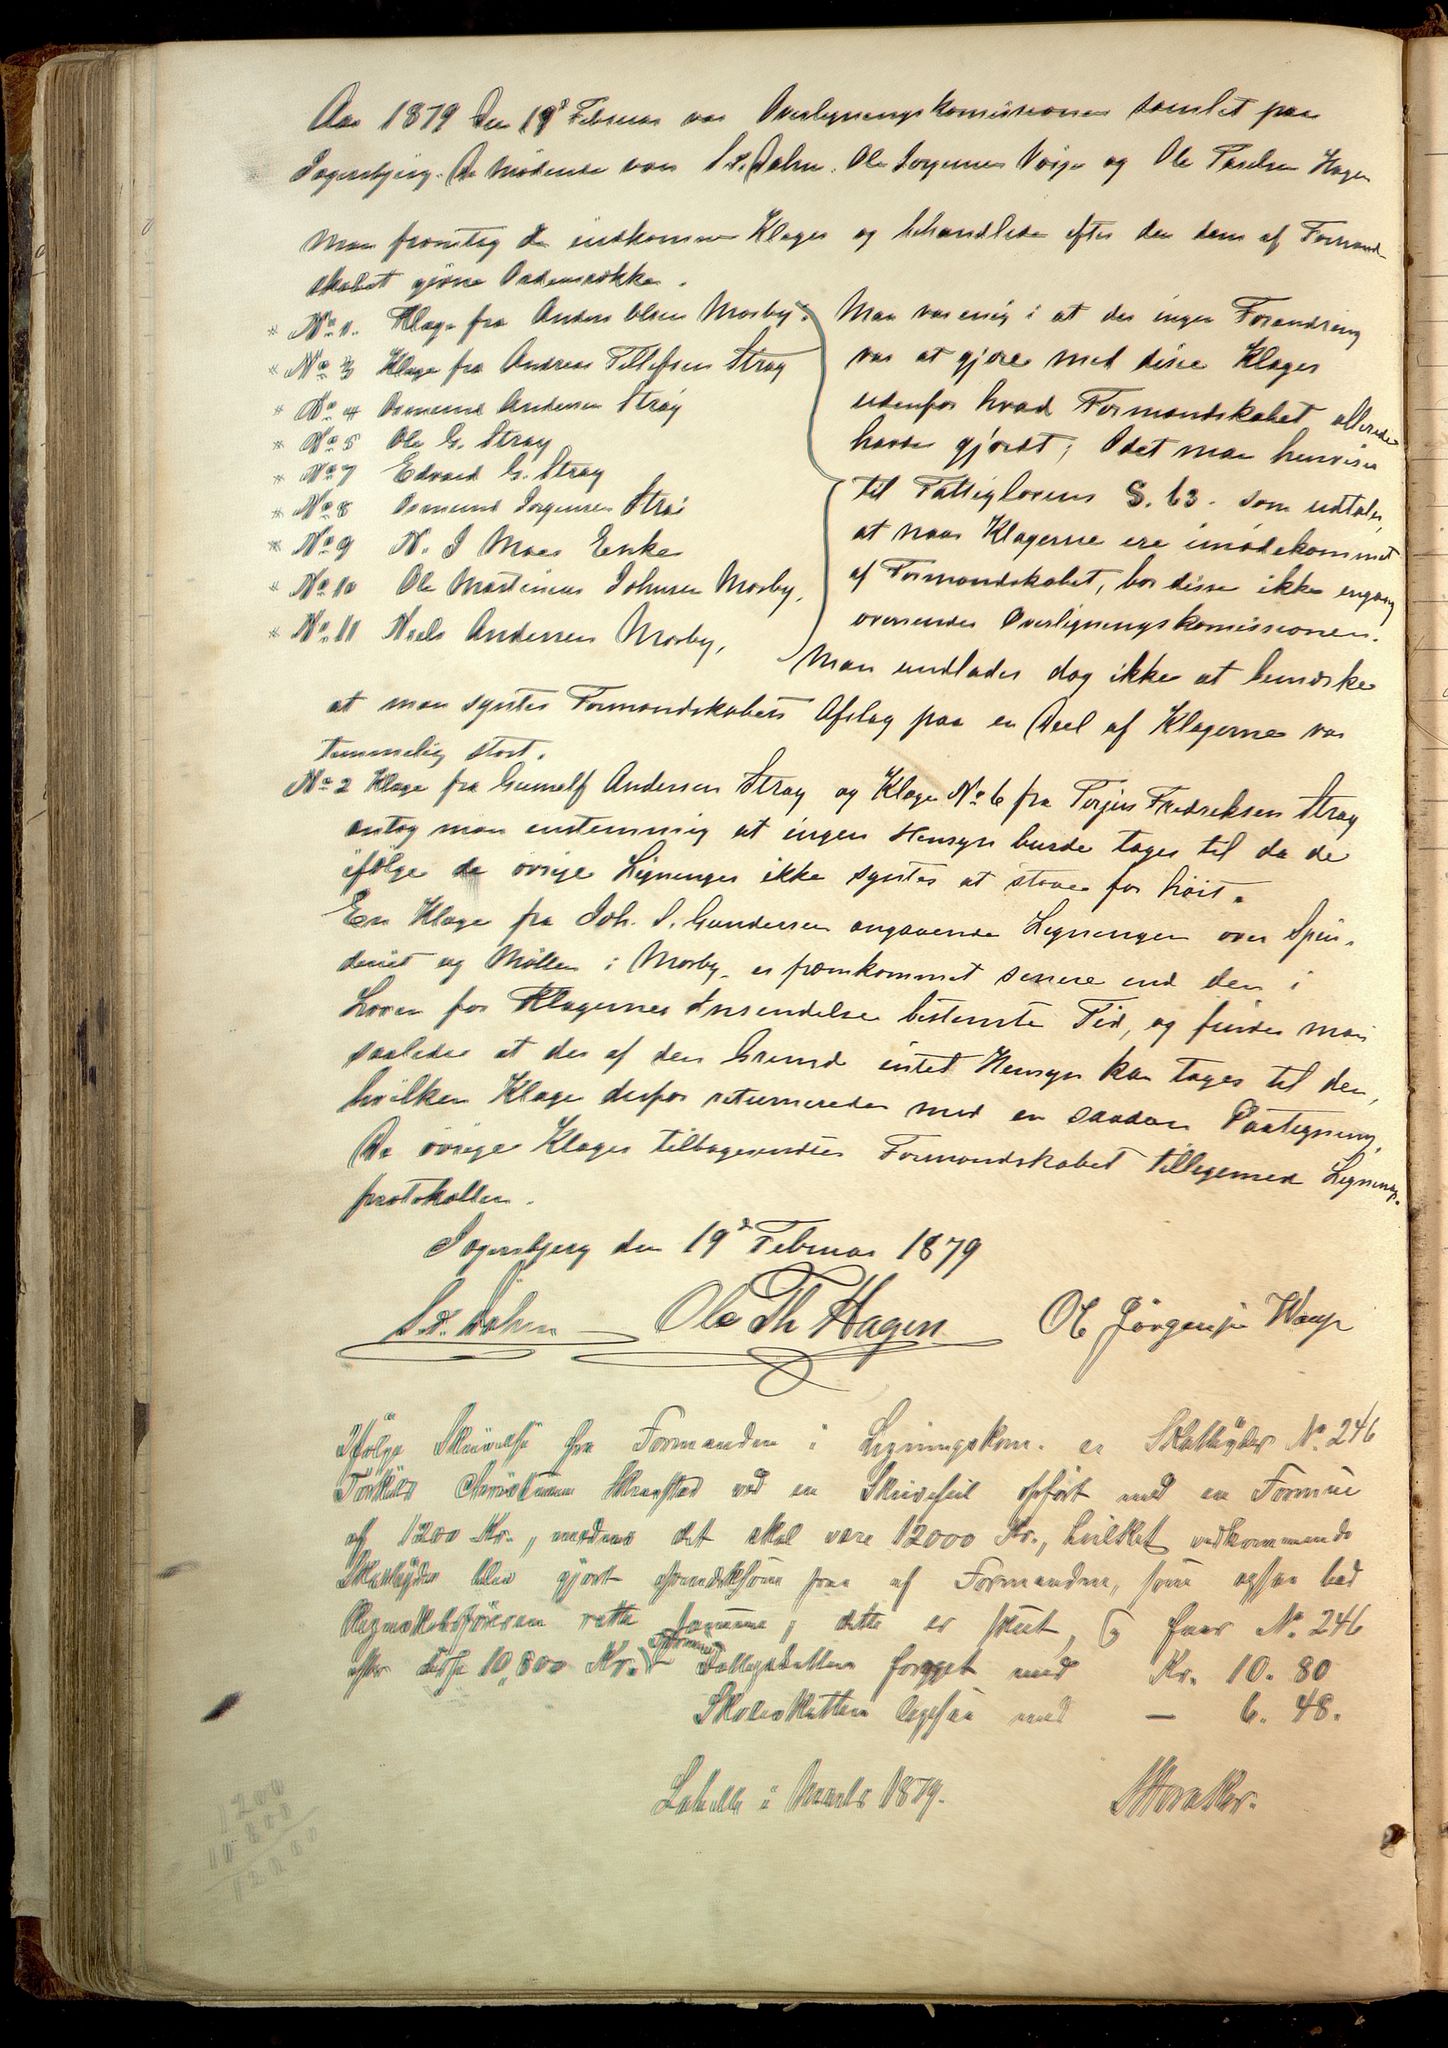 Aar 1879 Den 19d Februar var Overligningskomissionen samlet paa
Sagersbjerg. De Mødende vare S. Dahm. Ole Jørgensen Vaaje og Ole Hagen
Man fremtog de indkomne Klager og behandlede efter den dem af Formand-
skabet givne Ordensrække.
No 1. Klage fra Anders Olsen Mosby.
No 3 Klage fra Andreas Tellefsen Stray
No 4 Osmund Andersen Stray
No 5 Ole G. Stray
No 7 Edvard G. Stray
No 8 Osmund Jørgensen Strai
No 9 N. J Moes Enke
No 10 Ole Martinius Johnsen Mosby,
No. 11 Niels Andersen Mosby,
Man var enig i at der ingen Forandring
var at gjøre med disse Klager
udenfor hvad Formandskabet allerede
havde gjordt; Idet man henviser
til Fattiglovens §. 63. som udtaler,
at naar Klagerne ere imødekommet
af Formandskabet, bør disse ikke engang
oversendes Overligningskomissionen.
Man undlader dog ikke at bemærke
at man syntes Formandskabets Afslag paa en Deel af Klagerne var
temmelig stort.
No 2 Klage fra Gunulf Andersen Stray og Klage No 6 fra Torjus Fredriksen Stray
antog man enstemmig at ingen Hensyn burde tages til da de
ifølge de øvrige Ligninger ikke syntes at staae for høit.
En Klage fra Joh. S. Gundersen angaaende Ligningen over Spin-
deriet og Møllen i Mosby er fremkommet senere end den i
Loven for Klagernes Insendelse bestemte Tid, og finder man
saaledes at der af den Grund intet Hensyn kan tages til den,
hvilken Klage derfor returneredes med en saadan Paategning.
De øvrige Klager tilbagesendtes Formandskabet tilligemed Lignings-
protokollen.
Sagersbjerg den 19d Februar 1879
S. Dahm Ole Th Hagen Ole Jørgensen Waaje
Ifølge Skrivelse fra Formanden i Ligningskom. er Skatteyder No. 246
Torkild Christensen ved en Skrivefeil opført med en Formue
af 1200 Kr., medens det skal være 12000 Kr., hvilket vedkommende
Skatteyder blev gjort opmærksom paa af Formanden, som ogsaa bad
Regnskabsføreren rette samme; dette er skeet, og faar No. 246
efter disse 10,800 Kr. Formue Fattigskatten forøget med Kr. 10. 80
Skoleskatten ligesaa med — 6. 48.
i Marts 1879.
1200
10800
12000